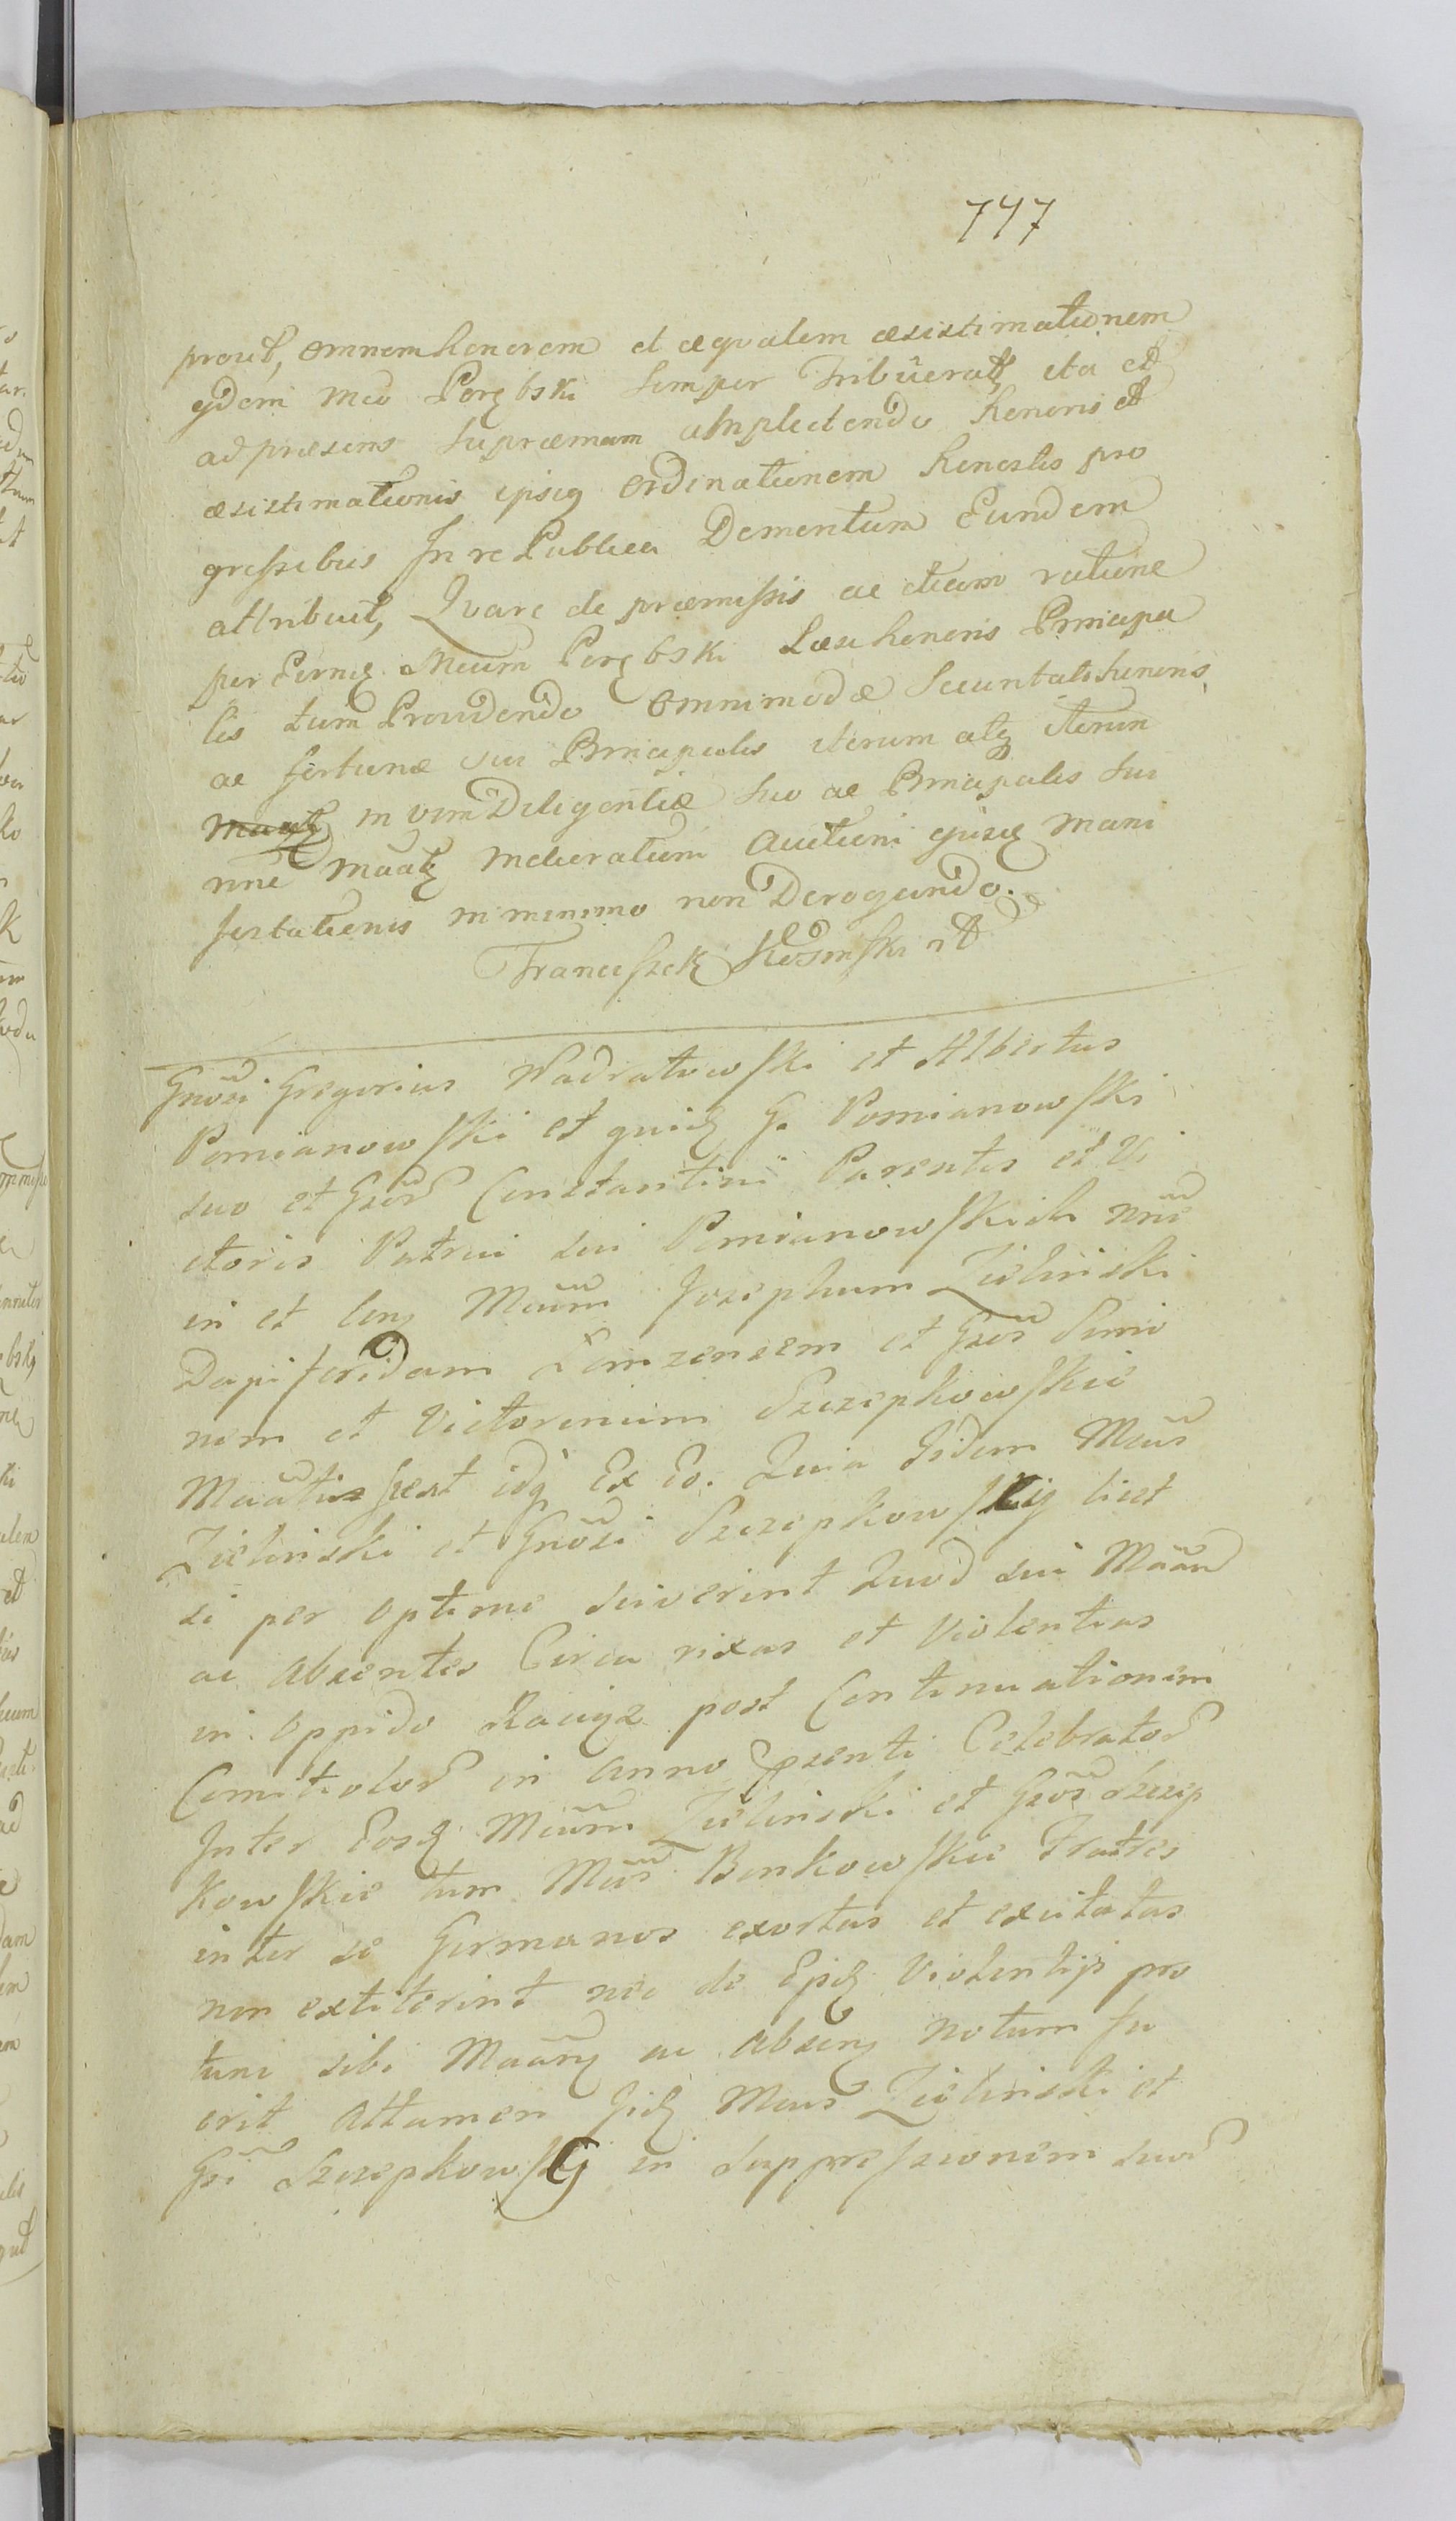 747
prout, omnem honorem et æqvalem æsistimationem
ejdem Mco Porębski semper tribuerat, ita et
ad præsens supræmam amplectendo honoris et
æsistimationis ipsiq ordinationem honestis pro
gressibus In re Publica Dementum Eundem
attribuit, Qvare de præmissis ac etiam ratione
per Eundę Mcum Porębski Læsi honoris Principa
lis tum Providendo omnimodæ securitati honoris
ac fortunæ sui Principalis iterum atq iterum
in vim Diligentiæ suo ac Principalis sui
nne maatę melioratum auctioni ejusq mani
festationis in minimo non Derogando.
Franciszek Kosinski
Gnosi Gregorius Nadratowski et Albertus
Pomianowski et quidę G. Pomianowski
suo et Gsor Constantini Parentis et Vi
ctoris Patrui sui Pomianowskich nne
in et cony Mcum Josephum Zielinski
Dapiferidam Łomzensem et Gsos Simo
nem et Victorinum Szczepkowskie
Maatus est idq Ex Eo. Quia Iidem Mcus
Zielinski et Gnosi Szczepkowskij licet
si per optime sciverint Quod sui Maan
ac absentes Circa rixas et violentias
in oppido Raciąz post Continuationem
Comitiolor in anno Psenti Celebrator
Inter Eosdę Mcum Zielinski et Gsos Szczep
kowskie tum Mcos Bonkowskie Fratres
inter se Germanos exortas et excitatas
non extiterint nec de Ejsdę Violentijs pro
tunc sibi Maany ac abseny notum fu
erit attamen Iidę Mcus Zielinski et
Gsi Szczepkowskij in suppressionem suor